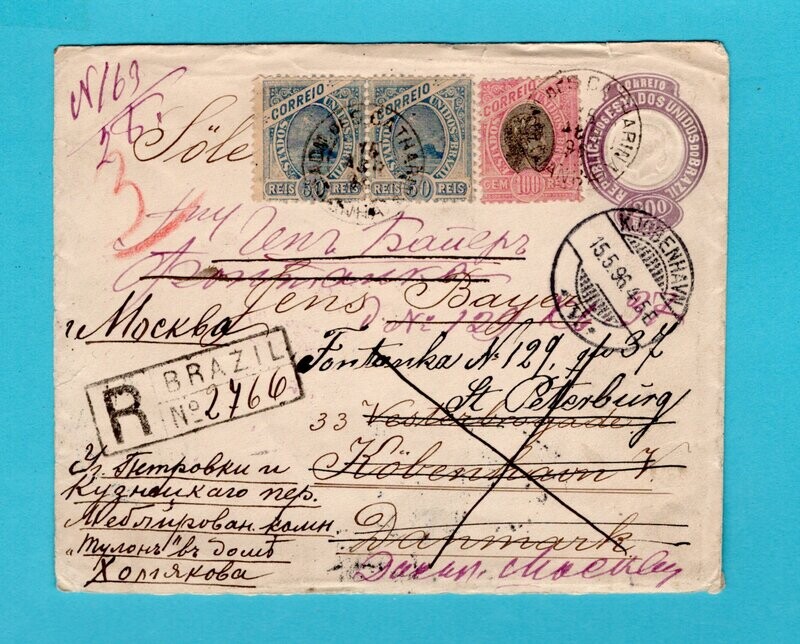 N 163
CORREIO
ESTADOS UNIDOS DO BRAZIL
50 REIS
CORREIO
ESTADOS UNIDOS DO BRAZIL
REIS 50 REIS
CORREIO
CEM 100 REIS
CORREIO
REPUBLICA DOS ESTADOS UNIDOS DO BRAZIL
200
3
Генъ Байеръ
KJØBENHAVN
15.5.96. 4-5 E
Фонтанка
Jens Bayer
№ 129
г Москва
Fontanka № 129, 37
St Petersburg
R BRAZIL
No 2766
33 Vesterbrogade
Köbenhavn V.
Danmark
Уг. Петровки и
Кузнецкаго пер.
Меблирован. комн.
„Тулонъ" въ домѣ
Хомякова
Москву